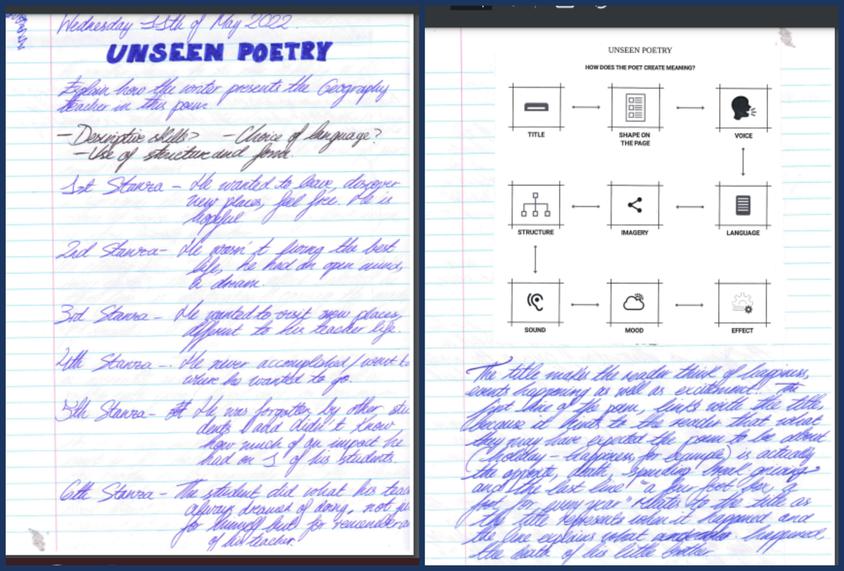 Wednesday 11th of May 2022.
UNSEEN POETRY
Explain how the writer presents the Geography
teacher in this poem
- Descriptive skills? - Choice of language?
- Use of structure and form.
1st Stanza - He wanted to leave, discover
new places, feel free. He is
hopeful
2nd Stanza - He wasn't living the best
life, he had an open mind,
a dream.
3rd Stanza - He wanted to visit new places,
different to his teacher life.
4th Stanza - He never accomplished / went to
where he wanted to go.
5th Stanza - He was forgotten by other stu
dents and didn't know
how much of an impact he
had on 1 of his students.
6th Stanza - The student did what his teac
always dreamt of doing, not ju
for himself but for
of his teacher.
UNSEEN POETRY
HOW DOES THE POET CREATE MEANING?
TITLE
SHAPE ON
THE PAGE
VOICE
STRUCTURE
IMAGERY
LANGUAGE
SOUND
MOOD
EFFECT
The title makes the reader think of happiness,
events happening as well as excitement. The
first line of the poem, links with the title,
because it hints to the reader that what
they may have expected the poem to be about
(holiday - happiness for example) is actually
the opposite, death, spending break grieving
and the last line "a four foot box, a
foot for every year" relates to the title as
the title represents when it happened and
the line explains what happened,
the death of his little brother.